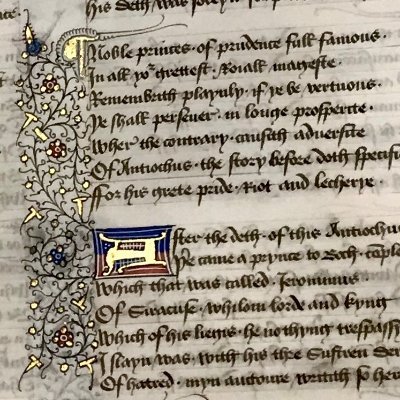 his deth was
Noble princes · of prudence full famous ·
In all yoʳ grettest · Roiall mageste ·
Remembrith playnly · if ye be vertuous ·
Ye shall persever · in longe prosperite ·
Wher the contrary · causith adversite
Of Antiochus · the story before doth specifi
ffor his grete pride · Riot and lecherye ·
After the deth · of this Antiochu
came a prynce to Boch ·
Which that was called · Ieronimus
Of Siracuse · whilom lorde and kyng
Which of his liegis · he nothyng trespassy
Islayn was · with his thre Sustren
Of hatred · myn auctour writith so